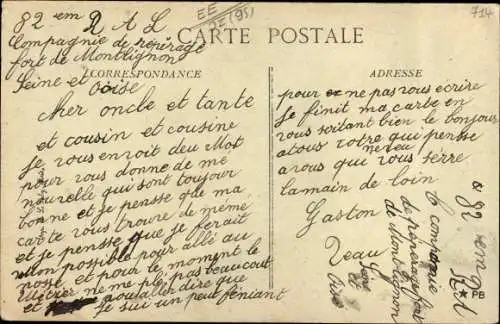 82 em R A L
EE
DE (95)
714
Compagnie de repérage
fort de Montlignon
Seine et Oise
CARTE POSTALE
CORRESPONDANCE
Cher oncle et tante
et cousin et cousine
Je vous envoit deu Mot
pour vous donne de me
nouvelle qui sont toujour
bonne et je pensse que ma
carte vous trouve de même
et je pensse que je ferait
mon possible pour allé au
nosse et pour le moment le
Métier ne me plé pas beaucout
et pou aller dire que
je sui un peut féniant
ADRESSE
pour ne pas vous ecrire
Je finit ma carte en
vous soitant bien le bonjour
a tous votre qui pensse
neveu
a vous qui vous serre
la main de loin
Gaston
82 em R A L
6 compagnie
de reperage fort
de Montlignon
Seine
et
Oise
PB